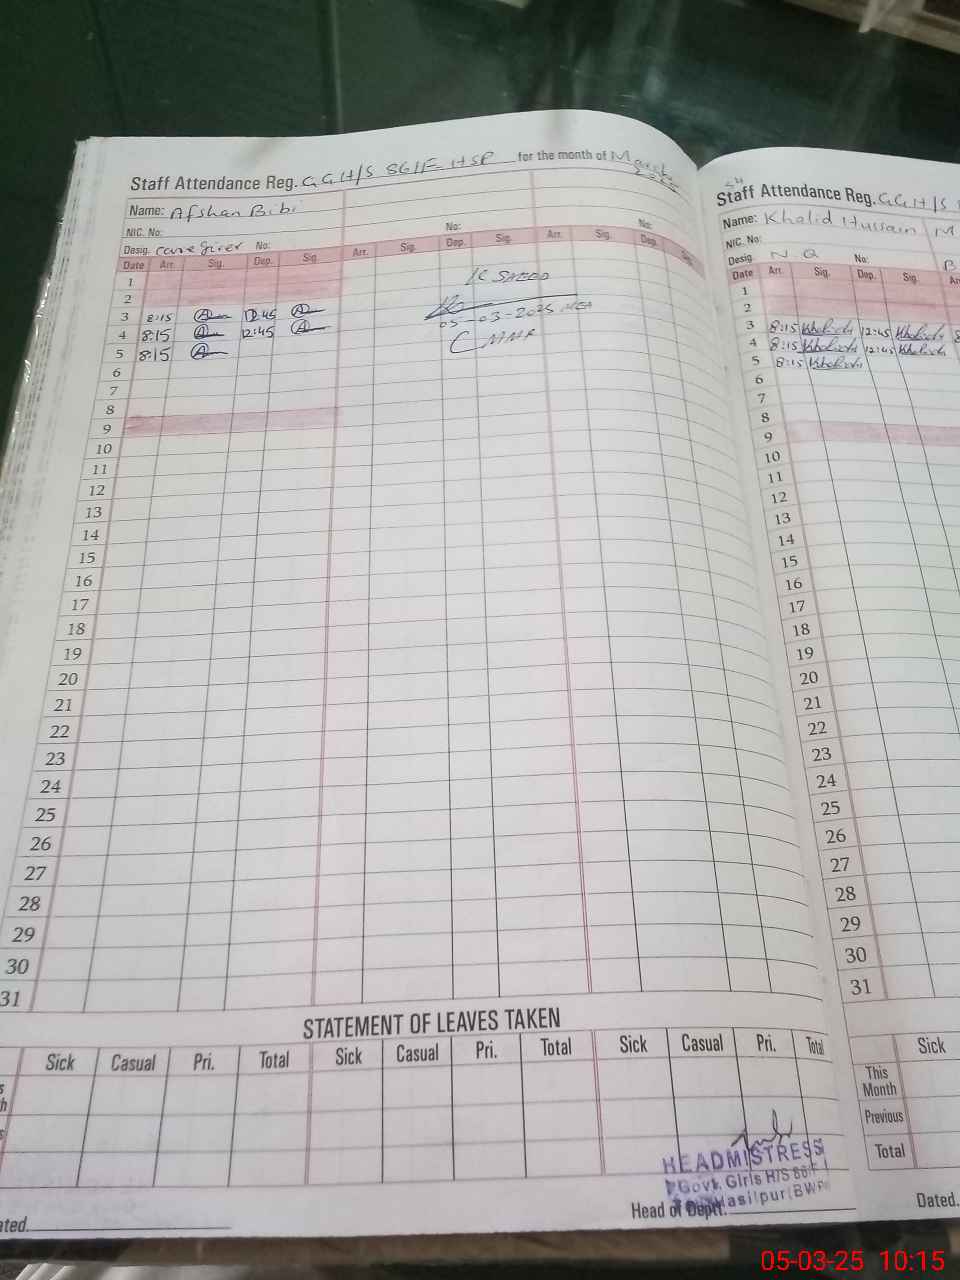 Staff Attendance Reg. G.G.H/S 86/F HSP for the month of March 2025
Name: Afshan Bibi
NIC. No:
Desig. care giver No: No: No:
Date Arr. Sig. Dep. Sig. Arr. Sig. Dep. Sig. Arr. Sig. Dep. Sig.
1
2
3 8:15 12:45
4 8:15 12:45
5 8:15
SAEED
05-03-2025 MEA
6
7
8
9
10
11
12
13
14
15
16
17
18
19
20
21
22
23
24
25
26
27
28
29
30
31
STATEMENT OF LEAVES TAKEN
Sick Casual Pri. Total Sick Casual Pri. Total Sick Casual Pri. Total
HEADMISTRESS
Govt. Girls H/S 86/F
Hasilpur (BWP)
Head of Deptt.
Staff Attendance Reg. G.G.H/S
Name: Khalid Hussain M
NIC. No:
Desig. N Q No: B
Date Arr. Sig. Dep. Sig.
1
2
3 8:15 Khalid 12:45 Khalid 8
4 8:15 Khalid 12:45 Khalid
5 8:15 Khalid
6
7
8
9
10
11
12
13
14
15
16
17
18
19
20
21
22
23
24
25
26
27
28
29
30
31
Sick
This Month
Previous
Total
Dated.
05-03-25 10:15